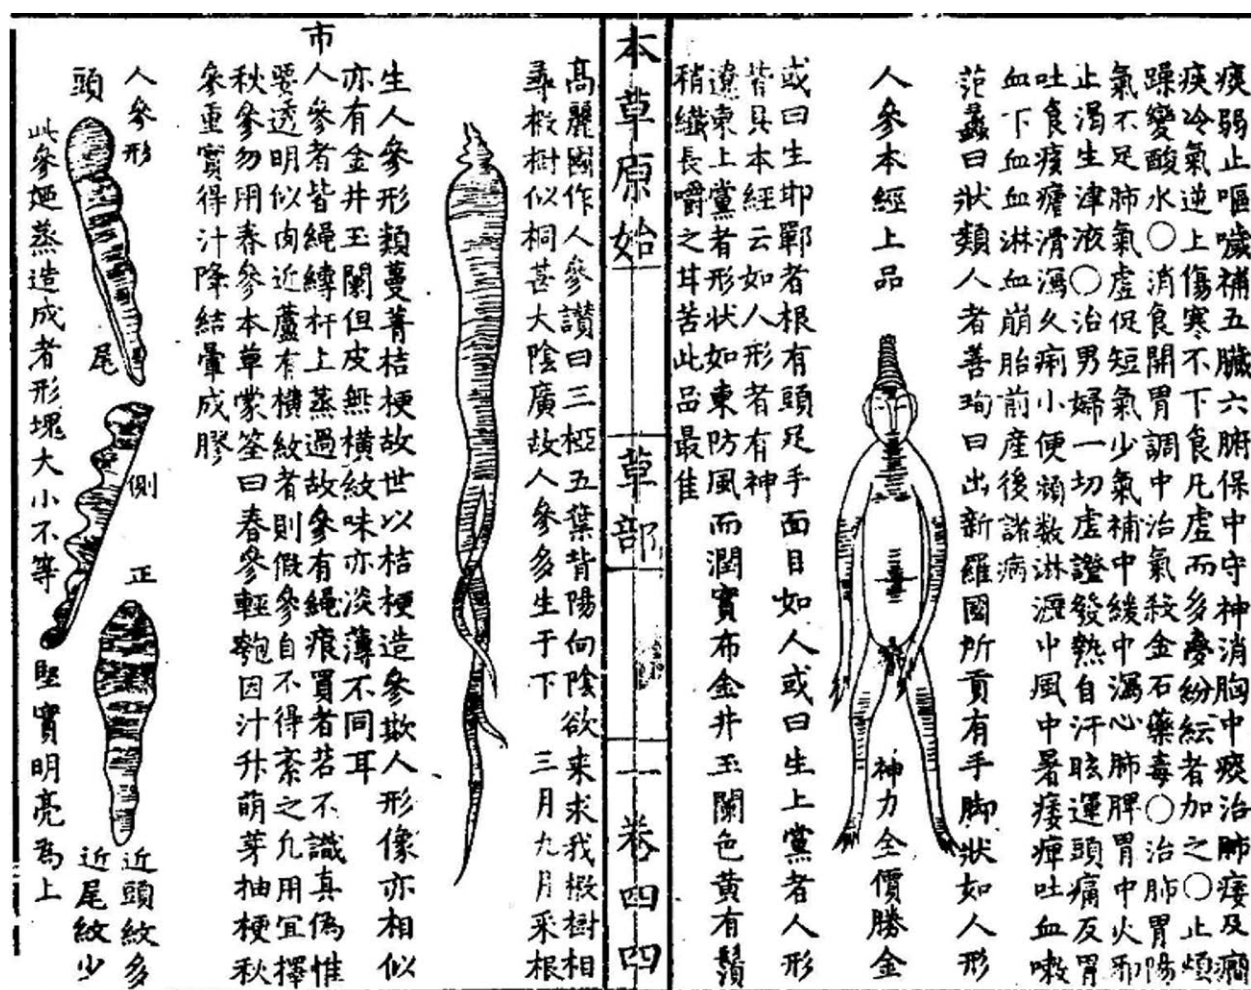 痰弱止嘔噦補五臟六腑保中守神消胸中痰治肺痿及癇
痰冷氣逆上傷寒不下食凡虛而多夢紛紜者加之〇止煩
躁變酸水〇消食開胃調中治氣殺金石藥毒〇治肺胃陽
氣不足肺氣虛促短氣少氣補中緩中瀉心肺脾胃中火邪
止渴生津液〇治男婦一切虛證發熱自汗眩運頭痛反胃
吐食痎瘧滑瀉久痢小便頻數淋瀝中風中暑痿痺吐血嗽
血下血血淋血崩胎前產後諸病
范蠡曰狀類人者善珣曰出新羅國所貢有手脚狀如人形
人參本經上品
神力全價勝金
或曰生邯鄲者根有頭足手面目如人或曰生上黨者人形
皆具本經云如人形者有神
遼東上黨者形状如東防風而潤實布金井玉闌色黄有鬚
稍纖長嚼之甘苦此品最佳
本草原始
草部
一卷 四四
高麗國作人參讚曰三椏五葉背陽向陰欲来求我椴樹相
尋椴樹似桐甚大陰廣故人參多生于下 三月九月采根
生人參形類蔓菁桔梗故世以桔梗造參欺人形像亦相似
亦有金井玉闌但皮無橫紋味亦淡薄不同耳
市人參者皆繩縳杆上蒸過故參有繩痕買者若不識真偽惟
要透明似肉近蘆有橫紋者則假參自不得紊之凡用宜擇
秋參勿用春參本草蒙筌曰春參輕匏因汁升萌芽抽梗秋
參重實得汁降結暈成膠
人參形
頭
尾
側
正
近頭紋多
近尾紋少
此參廼蒸造成者形塊大小不等
堅實明亮為上